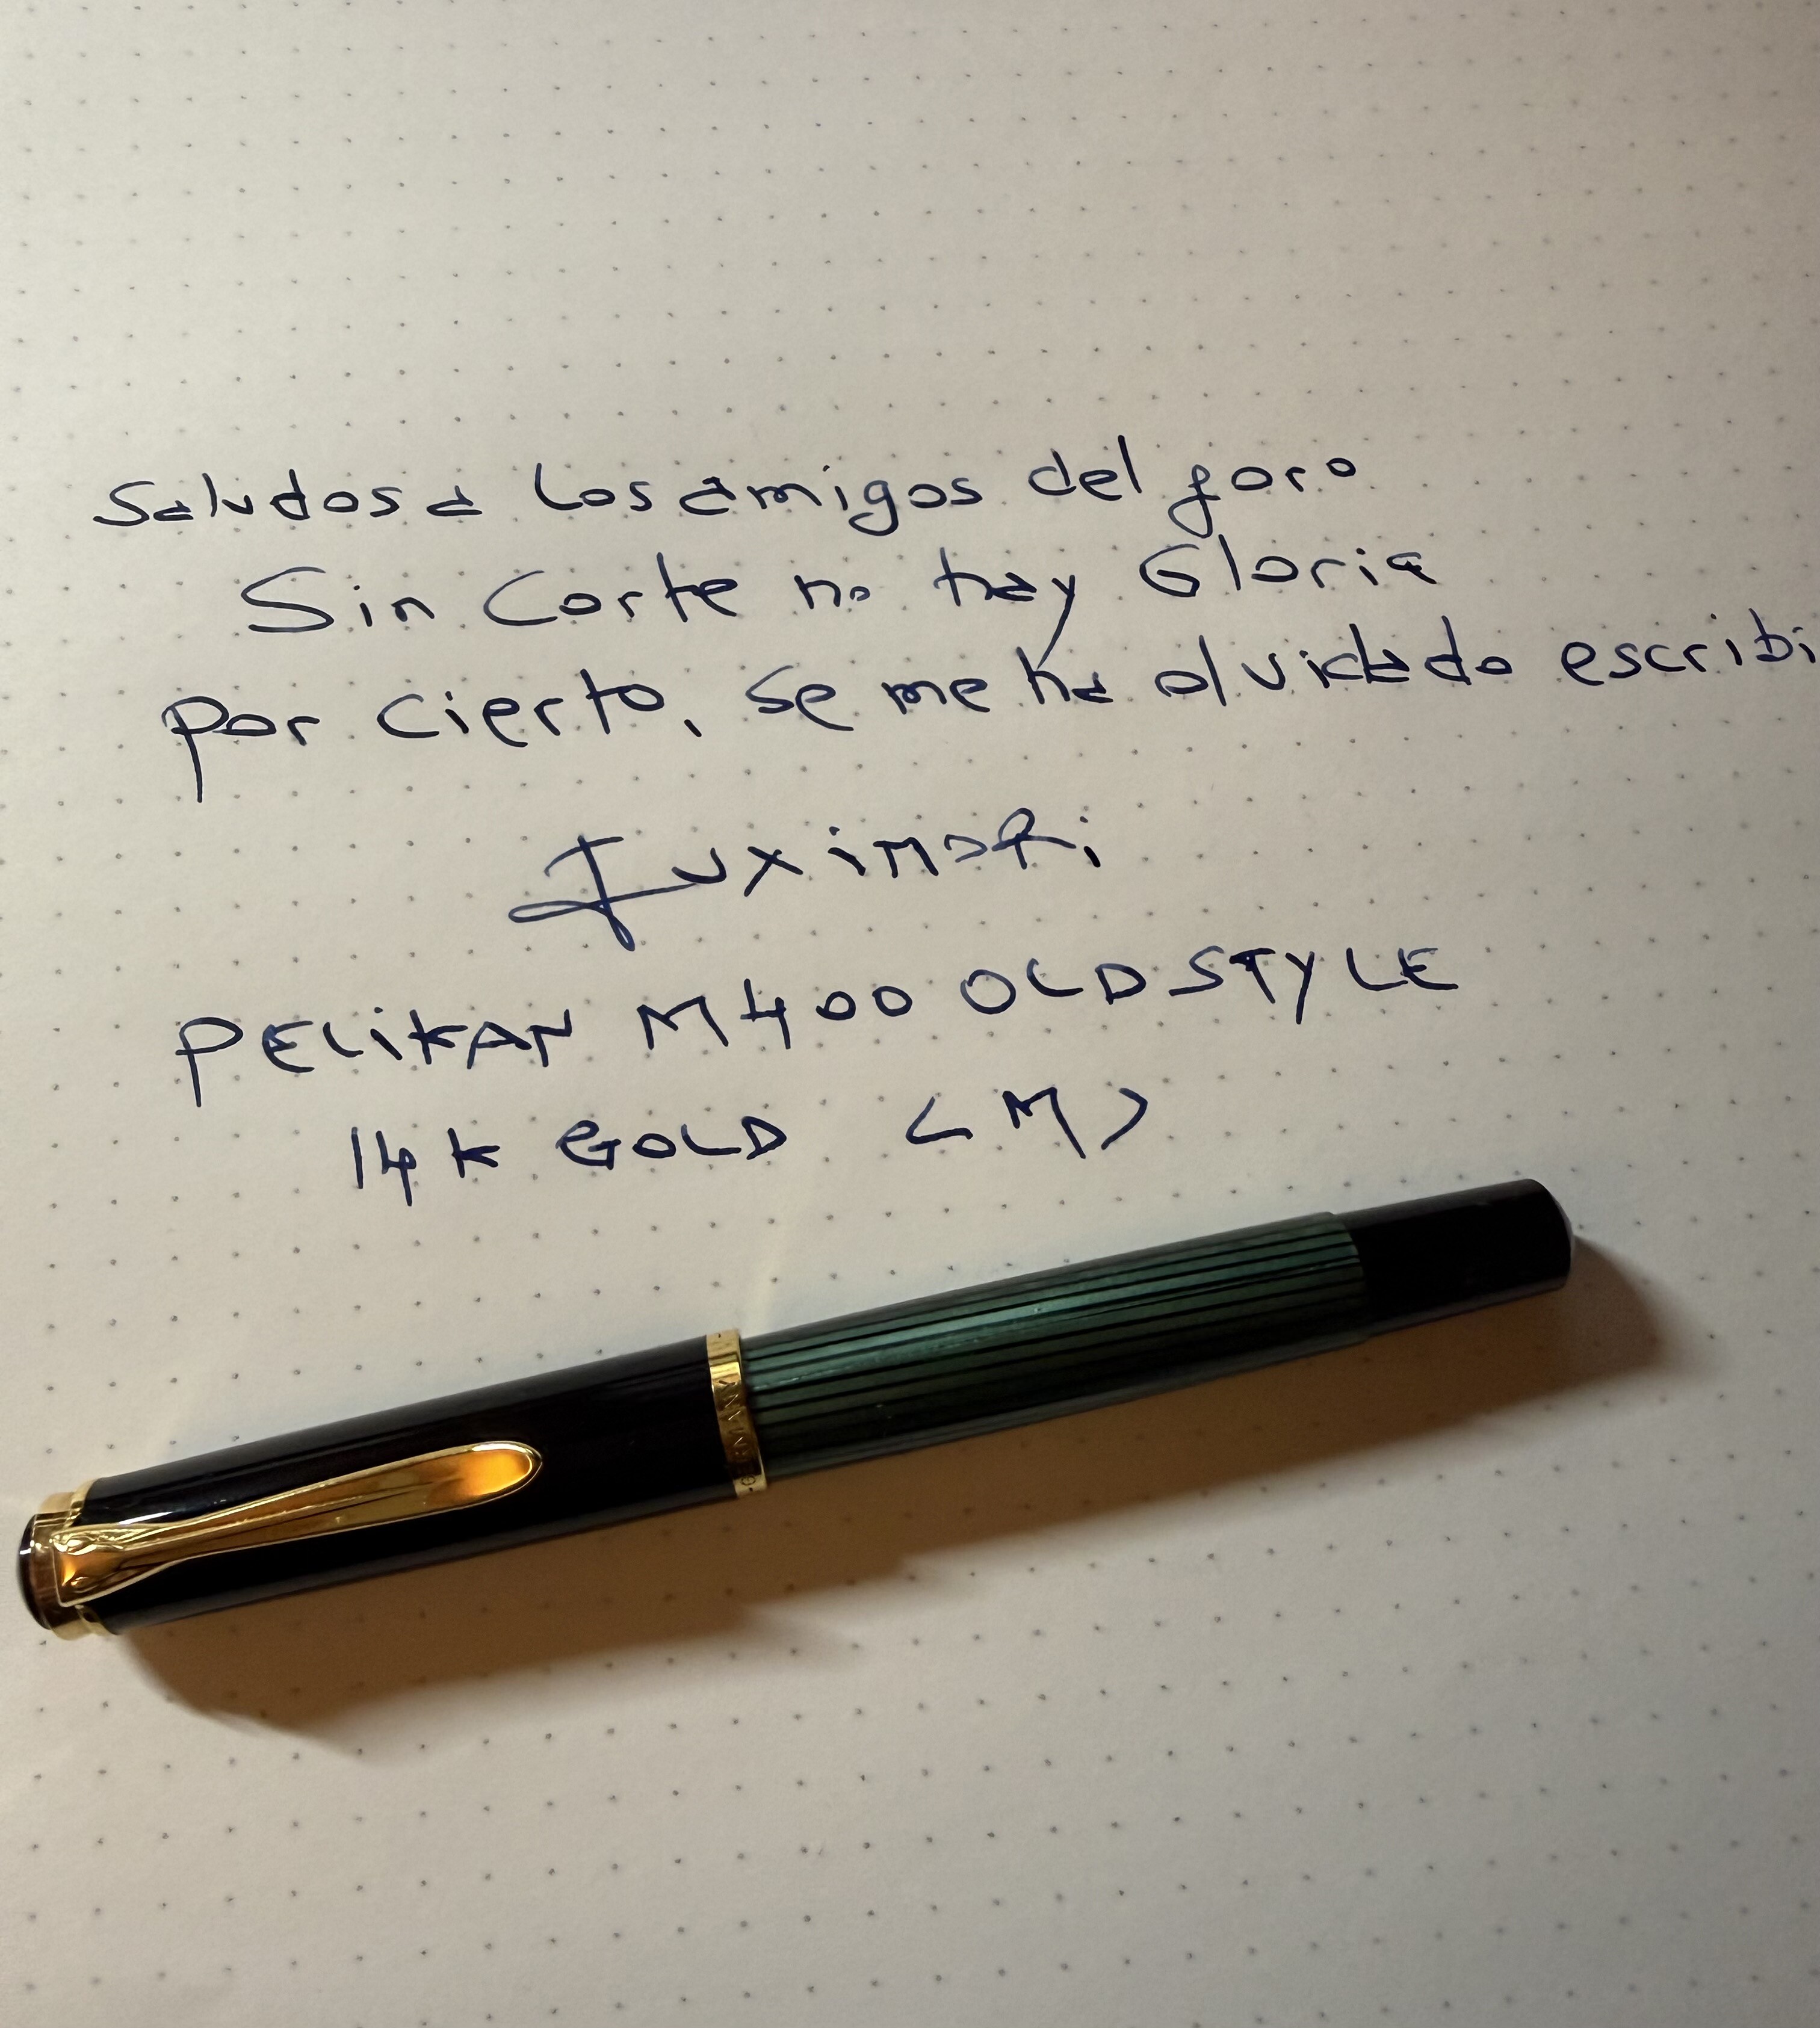 Saludos a los amigos del foro
Sin Corte no hay Gloria
por cierto, se me ha olvidado escribi
Fuximori
PELiKAN M400 OLD STYLE
14k GOLD <M>
GERMANY